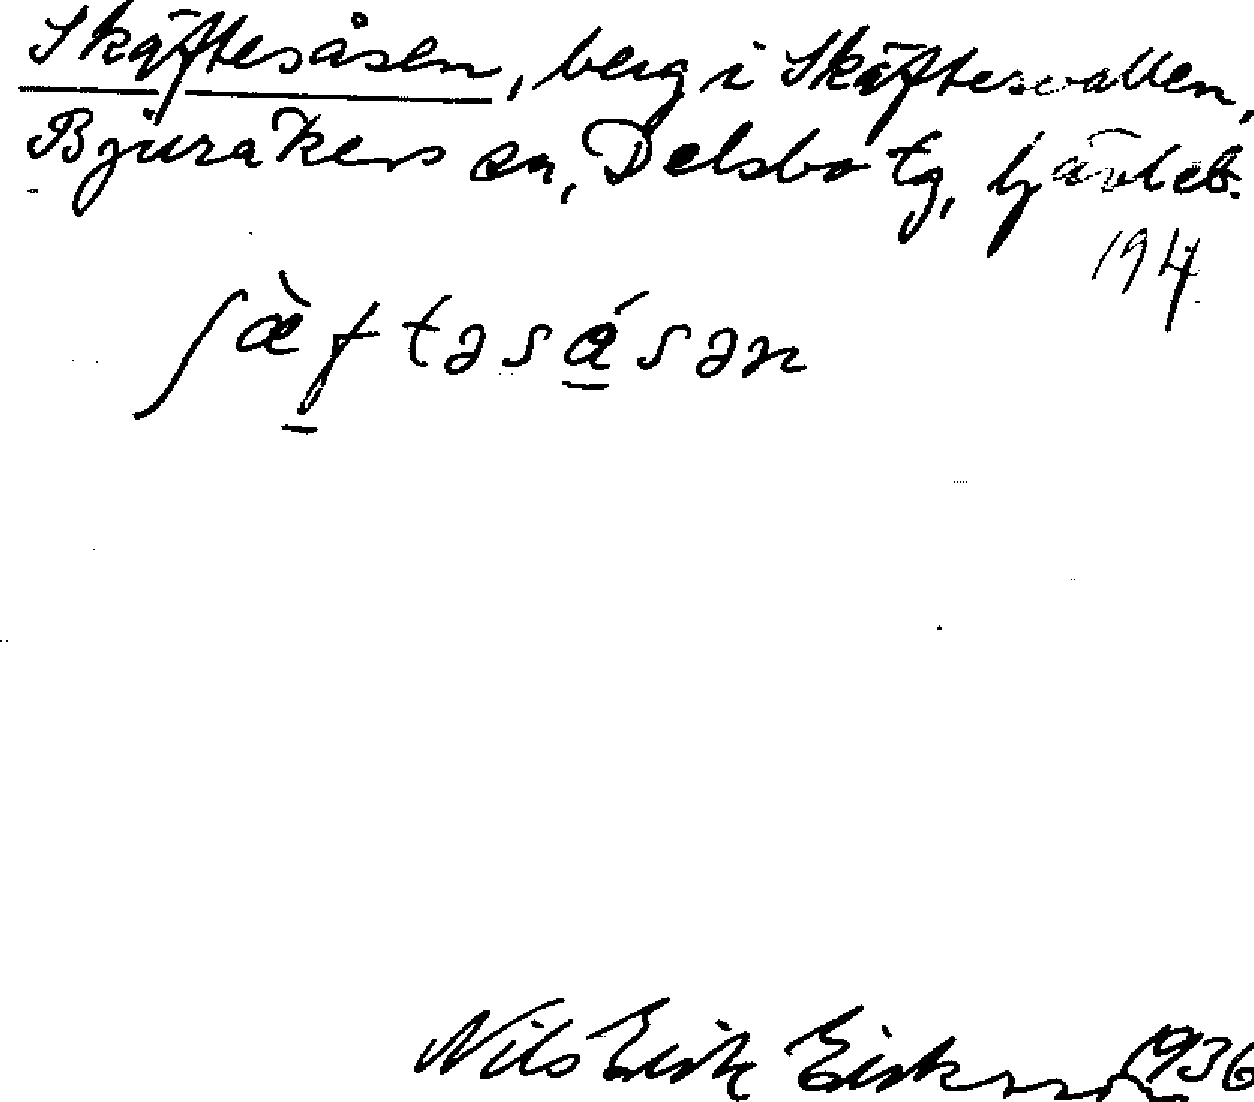 Skäftesåsen, berg i Skäftesvallen,
Bjuråkers sn, Delsbo tg, Gävleb.
194
ʃæ̀f̲təsá̲sən
Nils Erik Eriksson 1936